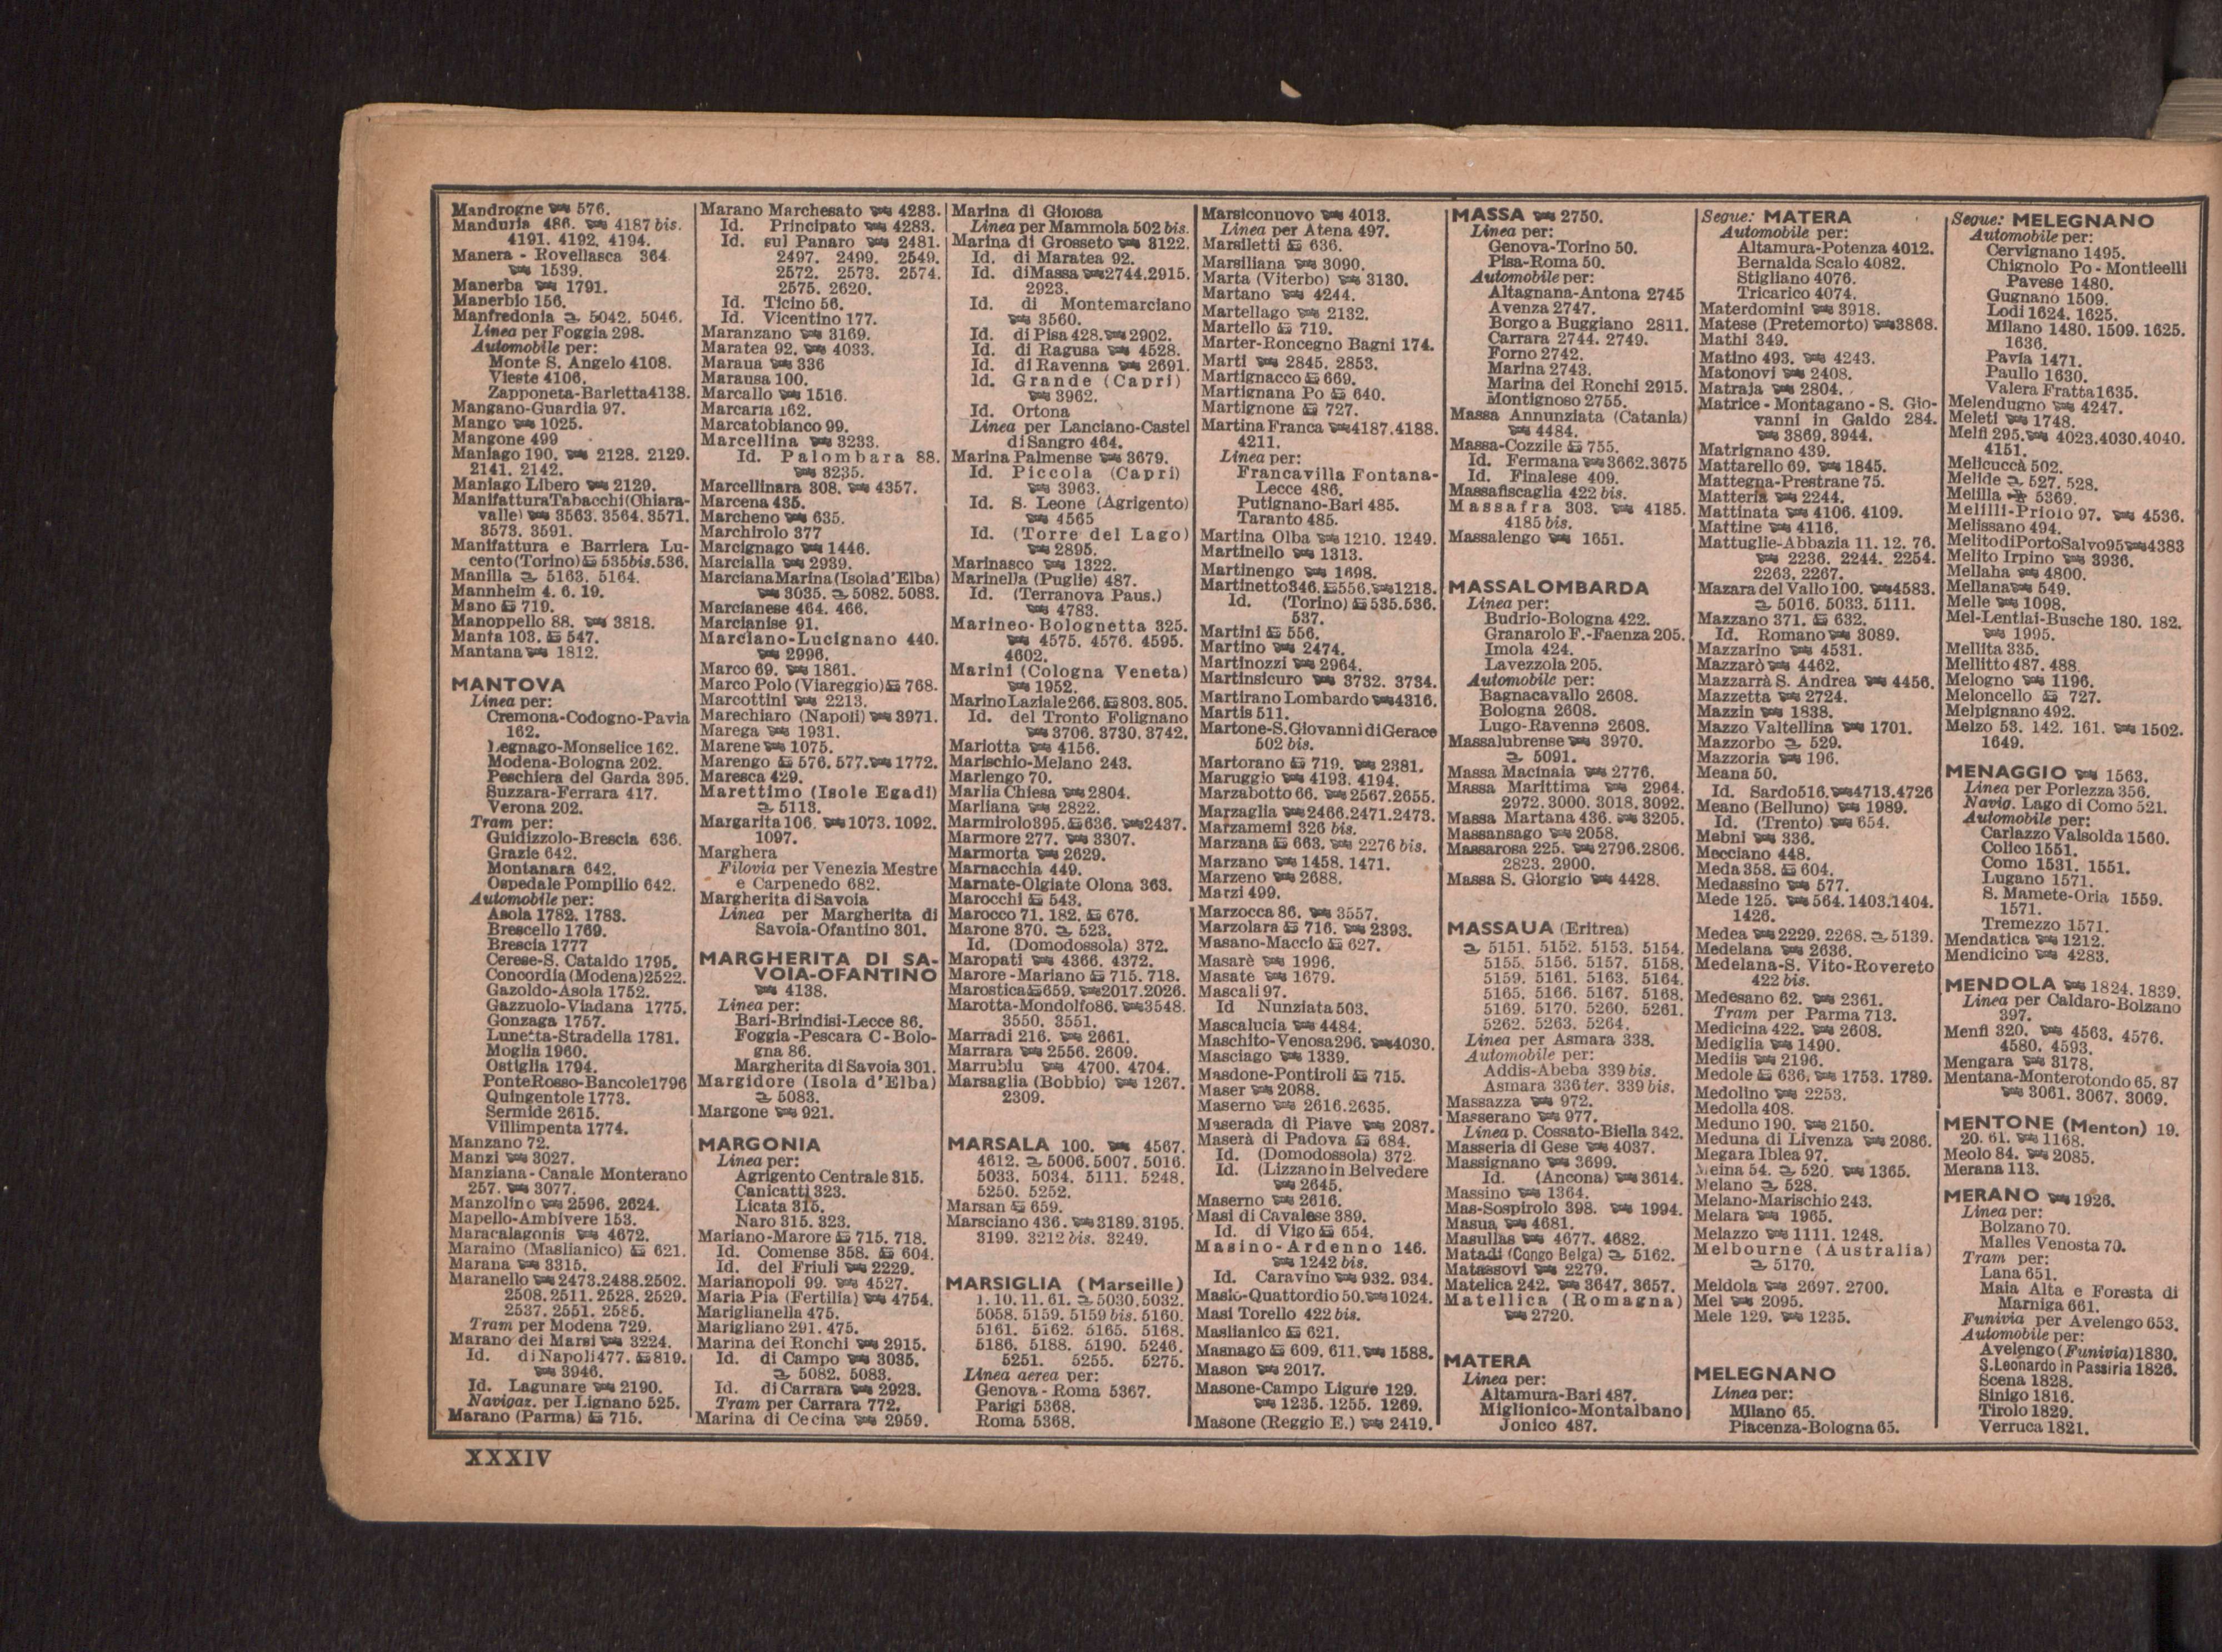 Mandrogne 576.
Manduria 486. 4187 bis.
4191. 4192. 4194.
Manera - Rovellasca 364
1539.
Manerba 1791.
Manerbio 156.
Manfredonia 5042. 5046.
Linea per Foggia 298.
Automobile per:
Monte S. Angelo 4108.
Vieste 4106.
Zapponeta-Barletta 4138.
Mangano-Guardia 97.
Mango 1025.
Mangone 499
Maniago 190. 2128. 2129.
2141. 2142.
Maniago Libero 2129.
Manifattura Tabacchi (Chiara-
valle) 3563. 3564. 3571.
3573. 3591.
Manifattura e Barriera Lu-
cento (Torino) 535bis. 536.
Manilla 5163. 5164.
Mannheim 4. 6. 19.
Mano 719.
Manoppello 88. 3818.
Manta 103. 547.
Mantana 1812.
MANTOVA
Linea per:
Cremona-Codogno-Pavia
162.
Legnago-Monselice 162.
Modena-Bologna 202.
Peschiera del Garda 395.
Suzzara-Ferrara 417.
Verona 202.
Tram per:
Guidizzolo-Brescia 636.
Grazie 642.
Montanara 642.
Ospedale Pompilio 642.
Automobile per:
Asola 1782. 1783.
Brescello 1769.
Brescia 1777
Cerese-S. Cataldo 1795.
Concordia (Modena) 2522.
Gazoldo-Asola 1752.
Gazzuolo-Viadana 1775.
Gonzaga 1757.
Lunetta-Stradella 1781.
Moglia 1960.
Ostiglia 1794.
Ponte Rosso-Bancole 1796
Quingentole 1773.
Sermide 2615.
Villimpenta 1774.
Manzano 72.
Manzi 3027.
Manziana - Canale Monterano
257. 3077.
Manzolino 2596. 2624.
Mapello-Ambivere 153.
Maracalagonis 4672.
Maraino (Maslianico) 621.
Marana 3315.
Maranello 2473. 2488. 2502.
2508. 2511. 2528. 2529.
2537. 2551. 2585.
Tram per Modena 729.
Marano dei Marsi 3224.
Id. di Napoli 477. 819.
3946.
Id. Lagunare 2190.
Navigaz. per Lignano 525.
Marano (Parma) 715.
Marano Marchesato 4283.
Id. Principato 4283.
Id. sul Panaro 2481.
2497. 2499. 2549.
2572. 2573. 2574.
2575. 2620.
Id. Ticino 56.
Id. Vicentino 177.
Maranzano 3169.
Maratea 92. 4033.
Maraua 336
Marausa 100.
Marcallo 1516.
Marcaria 162.
Marcatobianco 99.
Marcellina 3233.
Id. Palombara 88.
3235.
Marcellinara 308. 4357.
Marcena 435.
Marcheno 635.
Marchirolo 377
Marcignago 1446.
Marcialla 2939.
Marciana Marina (Isola d'Elba)
3035. 5082. 5083.
Marcianese 464. 466.
Marcianise 91.
Marciano-Lucignano 440.
2996.
Marco 69. 1861.
Marco Polo (Viareggio) 768.
Marcottini 2213.
Marechiaro (Napoli) 3971.
Marega 1931.
Marene 1075.
Marengo 576. 577. 1772.
Maresca 429.
Marettimo (Isole Egadi)
5113.
Margarita 106. 1073. 1092.
1097.
Marghera
Filovia per Venezia Mestre
e Carpenedo 682.
Margherita di Savoia
Linea per Margherita di
Savoia-Ofantino 301.
MARGHERITA DI SA-
VOIA-OFANTINO
4138.
Linea per:
Bari-Brindisi-Lecce 86.
Foggia - Pescara C - Bolo-
gna 86.
Margherita di Savoia 301.
Margidore (Isola d'Elba)
5083.
Margone 921.
MARGONIA
Linea per:
Agrigento Centrale 315.
Canicattì 323.
Licata 315.
Naro 315. 323.
Mariano-Marore 715. 718.
Id. Comense 358. 604.
Id. del Friuli 2229.
Marianopoli 99. 4527.
Maria Pia (Fertilia) 4754.
Mariglianella 475.
Marigliano 291. 475.
Marina dei Ronchi 2915.
Id. di Campo 3035.
5082. 5083.
Id. di Carrara 2923.
Tram per Carrara 772.
Marina di Cecina 2959.
Marina di Gioiosa
Linea per Mammola 502 bis.
Marina di Grosseto 3122.
Id. di Maratea 92.
Id. di Massa 2744. 2915.
2923.
Id. di Montemarciano
3560.
Id. di Pisa 428. 2902.
Id. di Ragusa 4528.
Id. di Ravenna 2691.
Id. Grande (Capri)
3962.
Id. Ortona
Linea per Lanciano-Castel
di Sangro 464.
Marina Palmense 3679.
Id. Piccola (Capri)
3963.
Id. S. Leone (Agrigento)
4565
Id. (Torre del Lago)
2895.
Marinasco 1322.
Marinella (Puglie) 487.
Id. (Terranova Paus.)
4783.
Marineo-Bolognetta 325.
4575. 4576. 4595.
4602.
Marini (Cologna Veneta)
1952.
Marino Laziale 266. 803. 805.
Id. del Tronto Folignano
3706. 3730. 3742.
Mariotta 4156.
Marischio-Melano 243.
Marlengo 70.
Marlia Chiesa 2804.
Marliana 2822.
Marmirolo 395. 636. 2437.
Marmore 277. 3307.
Marmorta 2629.
Marnacchia 449.
Marnate-Olgiate Olona 363.
Marocchi 543.
Marocco 71. 182. 676.
Marone 370. 523.
Id. (Domodossola) 372.
Maropati 4366. 4372.
Marore - Mariano 715. 718.
Marostica 659. 2017. 2026.
Marotta-Mondolfo 86. 3548.
3550. 3551.
Marradi 216. 2661.
Marrara 2556. 2609.
Marrubiu 4700. 4704.
Marsaglia (Bobbio) 1267.
2309.
MARSALA 100. 4567.
4612. 5006. 5007. 5016.
5033. 5034. 5111. 5248.
5250. 5252.
Marsan 659.
Marsciano 436. 3189. 3195.
3199. 3212 bis. 3249.
MARSIGLIA (Marseille)
1. 10. 11. 61. 5030. 5032.
5058. 5159. 5159 bis. 5160.
5161. 5162. 5165. 5168.
5186. 5188. 5190. 5246.
5251. 5255. 5275.
Linea aerea per:
Genova - Roma 5367.
Parigi 5368.
Roma 5368.
Marsiconuovo 4013.
Linea per Atena 497.
Marsiletti 636.
Marsiliana 3090.
Marta (Viterbo) 3130.
Martano 4244.
Martellago 2132.
Martello 719.
Marter-Roncegno Bagni 174.
Marti 2845. 2853.
Martignacco 669.
Martignana Po 640.
Martignone 727.
Martina Franca 4187. 4188.
4211.
Linea per:
Francavilla Fontana-
Lecce 486.
Putignano-Bari 485.
Taranto 485.
Martina Olba 1210. 1249.
Martinello 1313.
Martinengo 1698.
Martinetto 346. 556. 1218.
Id. (Torino) 535. 536.
537.
Martini 556.
Martino 2474.
Martinozzi 2964.
Martinsicuro 3732. 3734.
Martirano Lombardo 4316.
Martis 511.
Martone-S. Giovanni di Gerace
502 bis.
Martorano 719. 2381.
Maruggio 4193. 4194.
Marzabotto 66. 2567. 2655.
Marzaglia 2466. 2471. 2473.
Marzamemi 326 bis.
Marzana 663. 2276 bis.
Marzano 1458. 1471.
Marzeno 2688.
Marzi 499.
Marzocca 86. 3557.
Marzolara 716. 2393.
Masano-Maccio 627.
Masarè 1996.
Masate 1679.
Mascali 97.
Id Nunziata 503.
Mascalucia 4484.
Maschito-Venosa 296. 4030.
Masciago 1339.
Masdone-Pontiroli 715.
Maser 2088.
Maserno 2616. 2635.
Maserada di Piave 2087.
Maserà di Padova 684.
Id. (Domodossola) 372
Id. (Lizzano in Belvedere
2645.
Maserno 2616.
Masi di Cavalese 389.
Id. di Vigo 654.
Masino-Ardenno 146.
1242 bis.
Id. Caravino 932. 934.
Masio-Quattordio 50. 1024.
Masi Torello 422 bis.
Maslianico 621.
Masnago 609. 611. 1588.
Mason 2017.
Masone-Campo Ligure 129.
1235. 1255. 1269.
Masone (Reggio E.) 2419.
MASSA 2750.
Linea per:
Genova-Torino 50.
Pisa-Roma 50.
Automobile per:
Altagnana-Antona 2745
Avenza 2747.
Borgo a Buggiano 2811.
Carrara 2744. 2749.
Forno 2742.
Marina 2743.
Marina dei Ronchi 2915.
Montignoso 2755.
Massa Annunziata (Catania)
4484.
Massa-Cozzile 755.
Id. Fermana 3662. 3675
Id. Finalese 409.
Massafiscaglia 422 bis.
Massafra 303. 4185.
4185 bis.
Massalengo 1651.
MASSALOMBARDA
Linea per:
Budrio-Bologna 422.
Granarolo F.-Faenza 205.
Imola 424.
Lavezzola 205.
Automobile per:
Bagnacavallo 2608.
Bologna 2608.
Lugo-Ravenna 2608.
Massalubrense 3970.
5091.
Massa Macinaia 2776.
Massa Marittima 2964.
2972. 3000. 3018. 3092.
Massa Martana 436. 3205.
Massansago 2058.
Massarosa 225. 2796. 2806.
2823. 2900.
Massa S. Giorgio 4428.
MASSAUA (Eritrea)
5151. 5152. 5153. 5154.
5155. 5156. 5157. 5158.
5159. 5161. 5163. 5164.
5165. 5166. 5167. 5168.
5169. 5170. 5260. 5261.
5262. 5263. 5264.
Linea per Asmara 338.
Automobile per:
Addis-Abeba 339 bis.
Asmara 336 ter. 339 bis.
Massazza 972.
Masserano 977.
Linea p. Cossato-Biella 342.
Masseria di Gese 4037.
Massignano 3699.
Id. (Ancona) 3614.
Massino 1364.
Mas-Sospirolo 398. 1994.
Masua 4681.
Masullas 4677. 4682.
Matadi (Congo Belga) 5162.
Matassovi 2279.
Matelica 242. 3647. 3657.
Matellica (Romagna)
2720.
MATERA
Linea per:
Altamura-Bari 487.
Miglionico-Montalbano
Jonico 487.
Segue: MATERA
Automobile per:
Altamura-Potenza 4012.
Bernalda Scalo 4082.
Stigliano 4076.
Tricarico 4074.
Materdomini 3918.
Matese (Pretemorto) 3868.
Mathi 349.
Matino 493. 4243.
Matonovi 2408.
Matraja 2804.
Matrice - Montagano - S. Gio-
vanni in Galdo 284.
3869. 3944.
Matrignano 439.
Mattarello 69. 1845.
Mattegna-Prestrane 75.
Matteria 2244.
Mattinata 4106. 4109.
Mattine 4116.
Mattuglie-Abbazia 11. 12. 76.
2236. 2244. 2254.
2263. 2267.
Mazara del Vallo 100. 4583.
5016. 5033. 5111.
Mazzano 371. 632.
Id. Romano 3089.
Mazzarino 4531.
Mazzarò 4462.
Mazzarrà S. Andrea 4456.
Mazzetta 2724.
Mazzin 1838.
Mazzo Valtellina 1701.
Mazzorbo 529.
Mazzoria 196.
Meana 50.
Id. Sardo 516. 4713. 4726
Meano (Belluno) 1989.
Id. (Trento) 654.
Mebni 336.
Mecciano 448.
Meda 358. 604.
Medassino 577.
Mede 125. 564. 1403. 1404.
1426.
Medea 2229. 2268. 5139.
Medelana 2636.
Medelana-S. Vito-Rovereto
422 bis.
Medesano 62. 2361.
Tram per Parma 713.
Medicina 422. 2608.
Mediglia 1490.
Mediis 2196.
Medole 636. 1753. 1789.
Medolino 2253.
Medolla 408.
Meduno 190. 2150.
Meduna di Livenza 2086.
Megara Iblea 97.
Meina 54. 520. 1365.
Melano 528.
Melano-Marischio 243.
Melara 1965.
Melazzo 1111. 1248.
Melbourne (Australia)
5170.
Meldola 2697. 2700.
Mel 2095.
Mele 129. 1235.
MELEGNANO
Linea per:
Milano 65.
Piacenza-Bologna 65.
Segue: MELEGNANO
Automobile per:
Cervignano 1495.
Chignolo Po - Monticelli
Pavese 1480.
Gugnano 1509.
Lodi 1624. 1625.
Milano 1480. 1509. 1625.
1636.
Pavia 1471.
Paullo 1630.
Valera Fratta 1635.
Melendugno 4247.
Meleti 1748.
Melfi 295. 4023. 4030. 4040.
4151.
Melicuccà 502.
Melide 527. 528.
Melilla 5369.
Melilli-Priolo 97. 4536.
Melissano 494.
Melito di Porto Salvo 95 4383
Melito Irpino 3936.
Mellaha 4800.
Mellana 549.
Melle 1098.
Mel-Lentiai-Busche 180. 182.
1995.
Mellita 335.
Mellitto 487. 488.
Melogno 1196.
Meloncello 727.
Melpignano 492.
Melzo 53. 142. 161. 1502.
1649.
MENAGGIO 1563.
Linea per Porlezza 356.
Navig. Lago di Como 521.
Automobile per:
Carlazzo Valsolda 1560.
Colico 1551.
Como 1531. 1551.
Lugano 1571.
S. Mamete-Oria 1559.
1571.
Tremezzo 1571.
Mendatica 1212.
Mendicino 4283.
MENDOLA 1824. 1839.
Linea per Caldaro-Bolzano
397.
Menfi 320. 4563. 4576.
4580. 4593.
Mengara 3178.
Mentana-Monterotondo 65. 87
3061. 3067. 3069.
MENTONE (Menton) 19.
20. 61. 1168.
Meolo 84. 2085.
Merana 113.
MERANO 1926.
Linea per:
Bolzano 70.
Malles Venosta 70.
Tram per:
Lana 651.
Maia Alta e Foresta di
Marniga 661.
Funivia per Avelengo 653.
Automobile per:
Avelengo (Funivia) 1830.
S. Leonardo in Passiria 1826.
Scena 1828.
Sinigo 1816.
Tirolo 1829.
Verruca 1821.
XXXIV